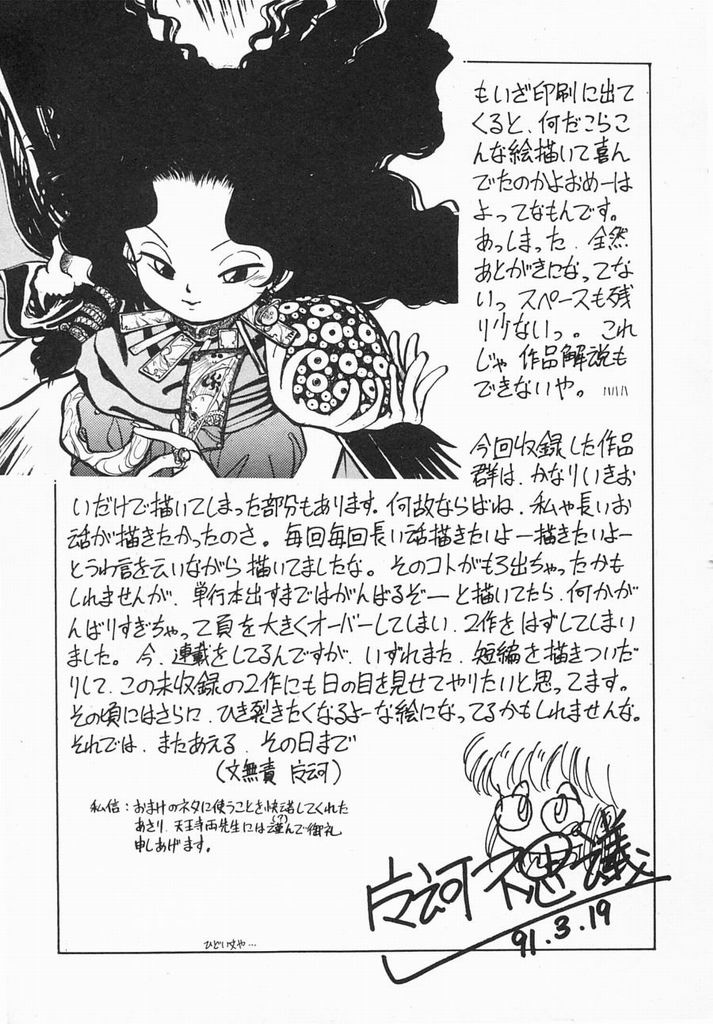 もいざ印刷に出て
くると、何だこらこ
んな絵描いて喜ん
でたのかよおめーは
よってなもんです。
あっしまった、全然
あとがきになってな
いっ スペースも残
り少ないっ。これ
じゃ作品解説も
できないや。
今回収録した作品
群は、かなりいきお
いだけで描いてしまった部分もあります。何故ならばね、私ゃ長いお
話が描きたかったのさ。毎回毎回長い話描きたいよー描きたいよー
とうわ言を云いながら描いてましたな。そのコトがもろ出ちゃったかも
しれませんが、単行本出すまではがんばるぞーーと描いてたら、何かが
んばりすぎちゃって頁を大きくオーバーしてしまい、2作をはずしてしまい
ました。今、連載をしてるんですが、いずれまた、短編を描きついだ
りして、この未収録の2作にも日の目を見せてやりたいと思ってます。
その頃にはさらに、ひき裂きたくなるよーな絵になってるかもしれませんな。
それでは、またあえる、その日まで
(文無責 )
私信:おまけのネタに使うことを快諾してくれた
あさり、天王寺両先生には謹んで(?)御礼
申しあげます。
不思議
91.3.19
ひどい文や…